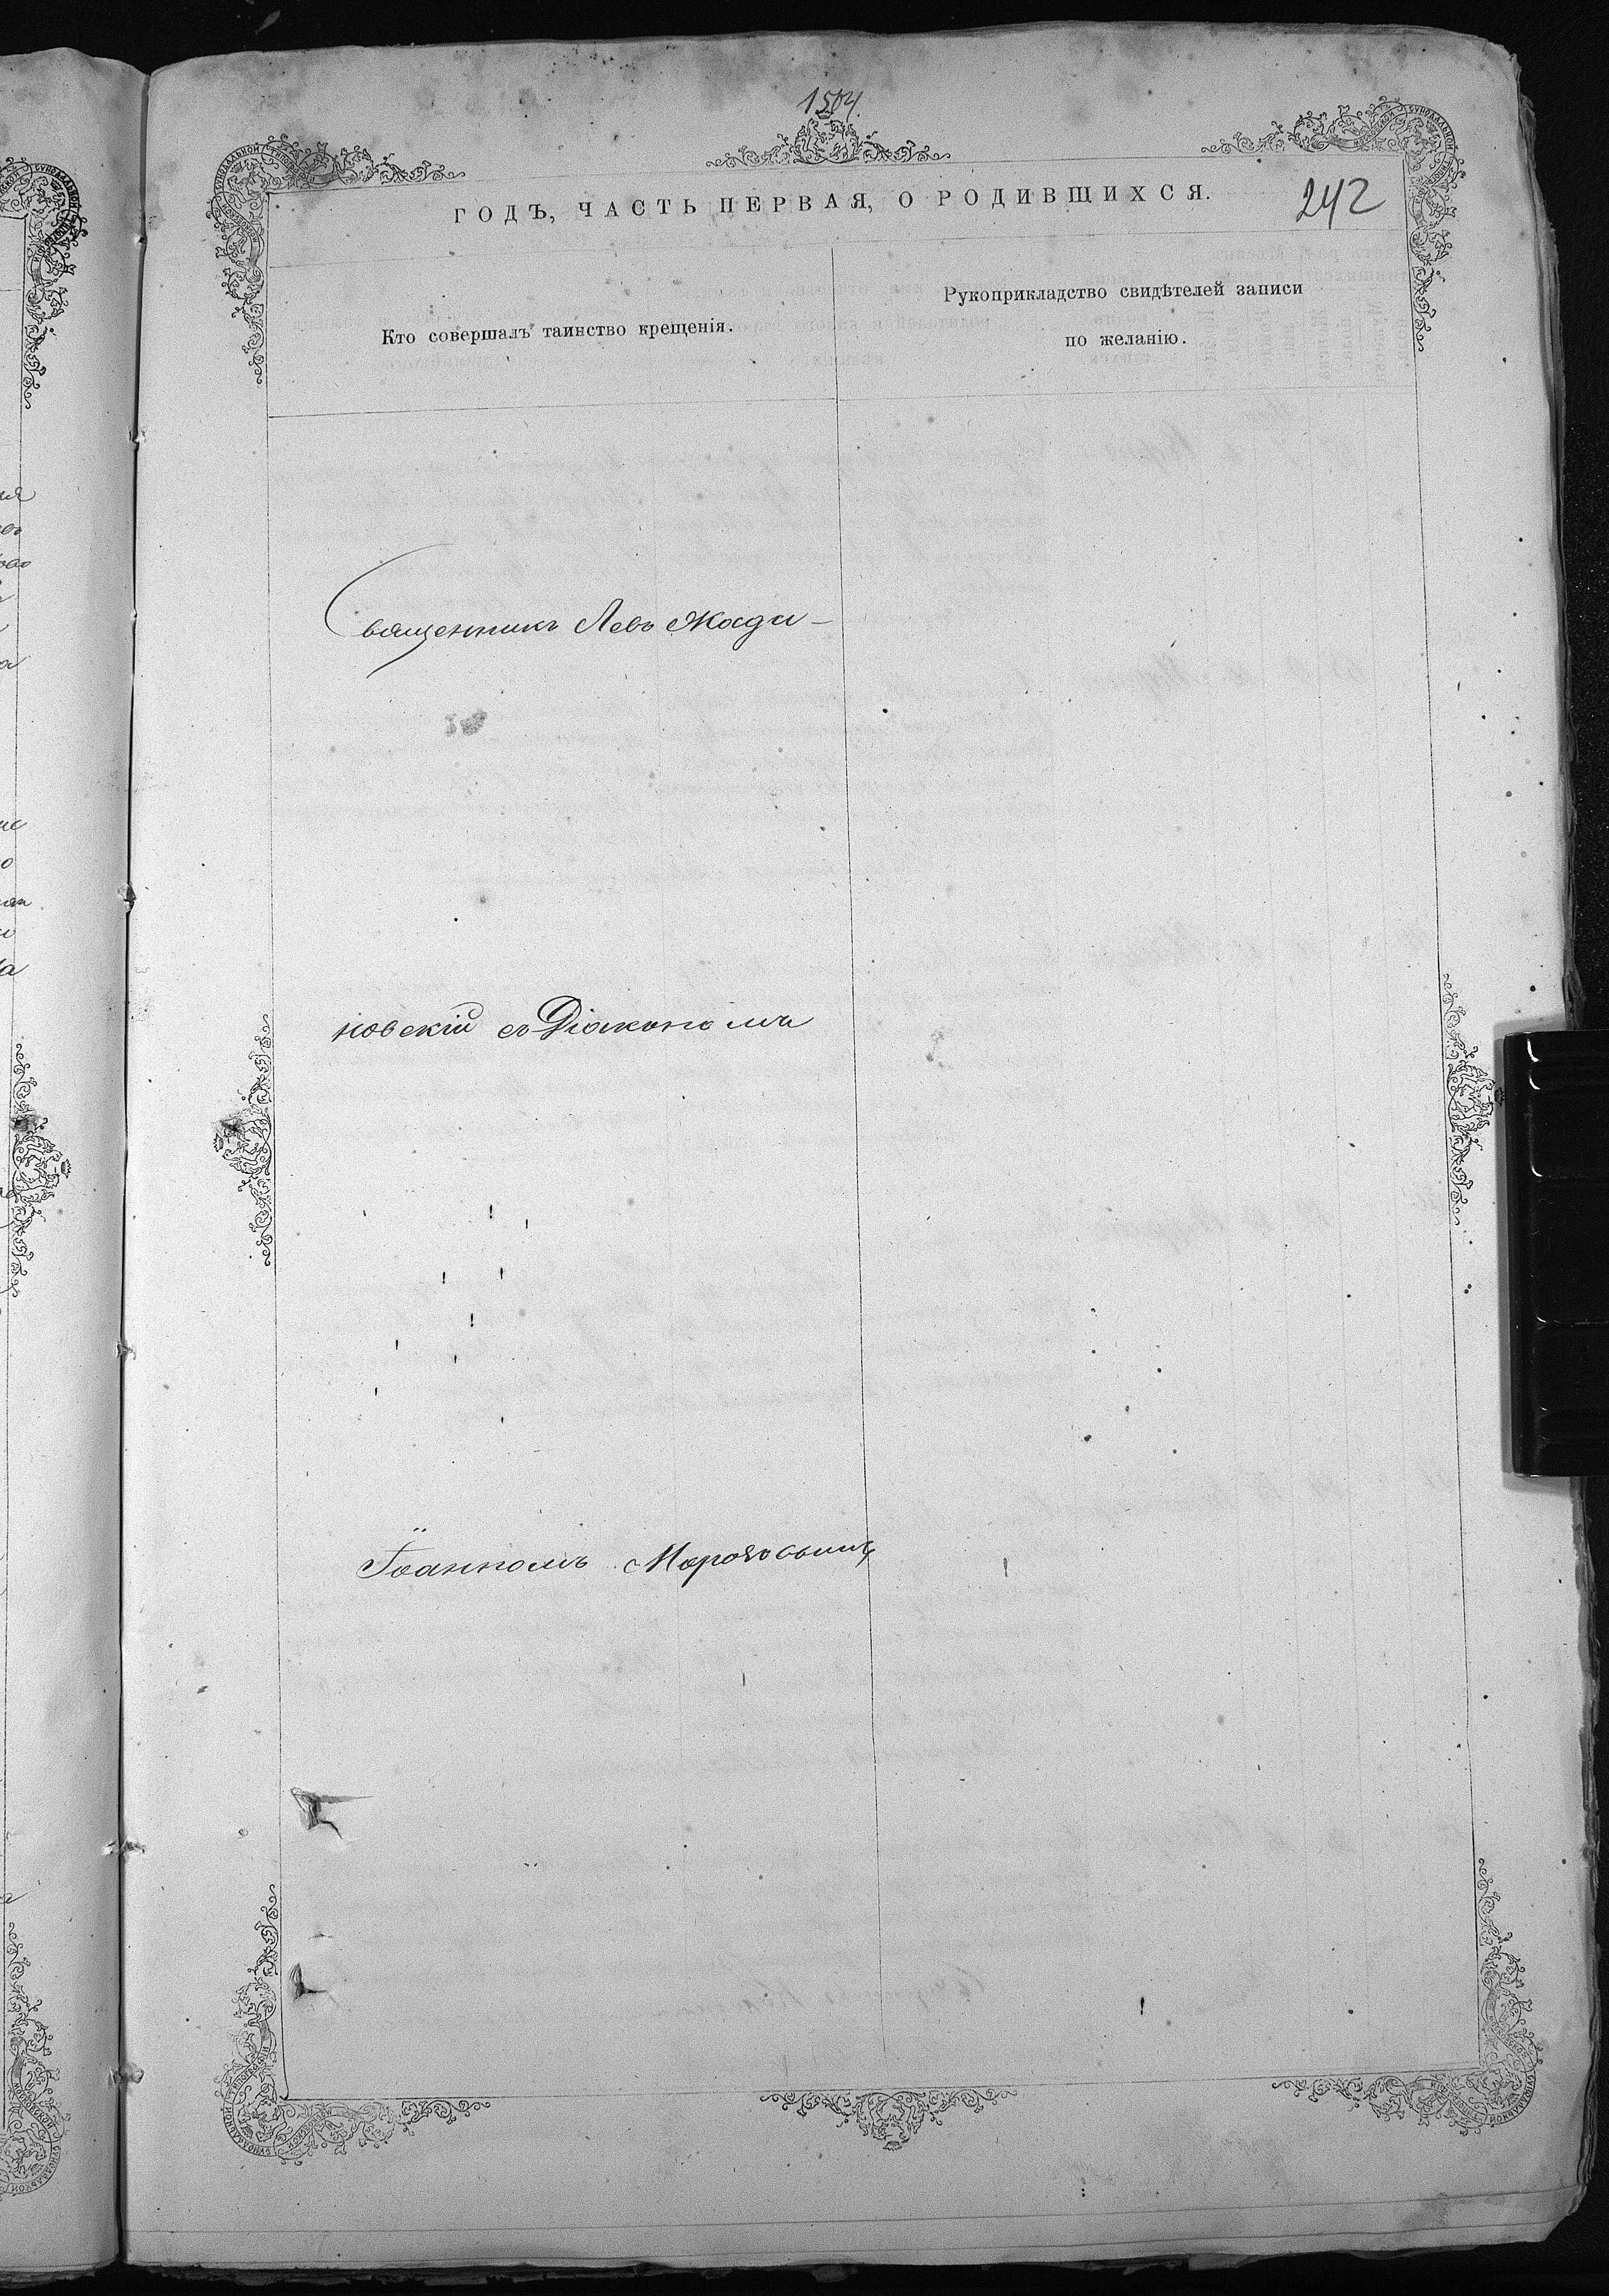 1504.
ГОДЪ, ЧАСТЬ ПЕРВАЯ, О РОДИВШИХСЯ.
242
Кто совершалъ таинство крещенія.
Рукоприкладство свидѣтелей записи
по желанію.
Священникъ Левъ Жада-
новскій съ Діакономъ
Іоанномъ